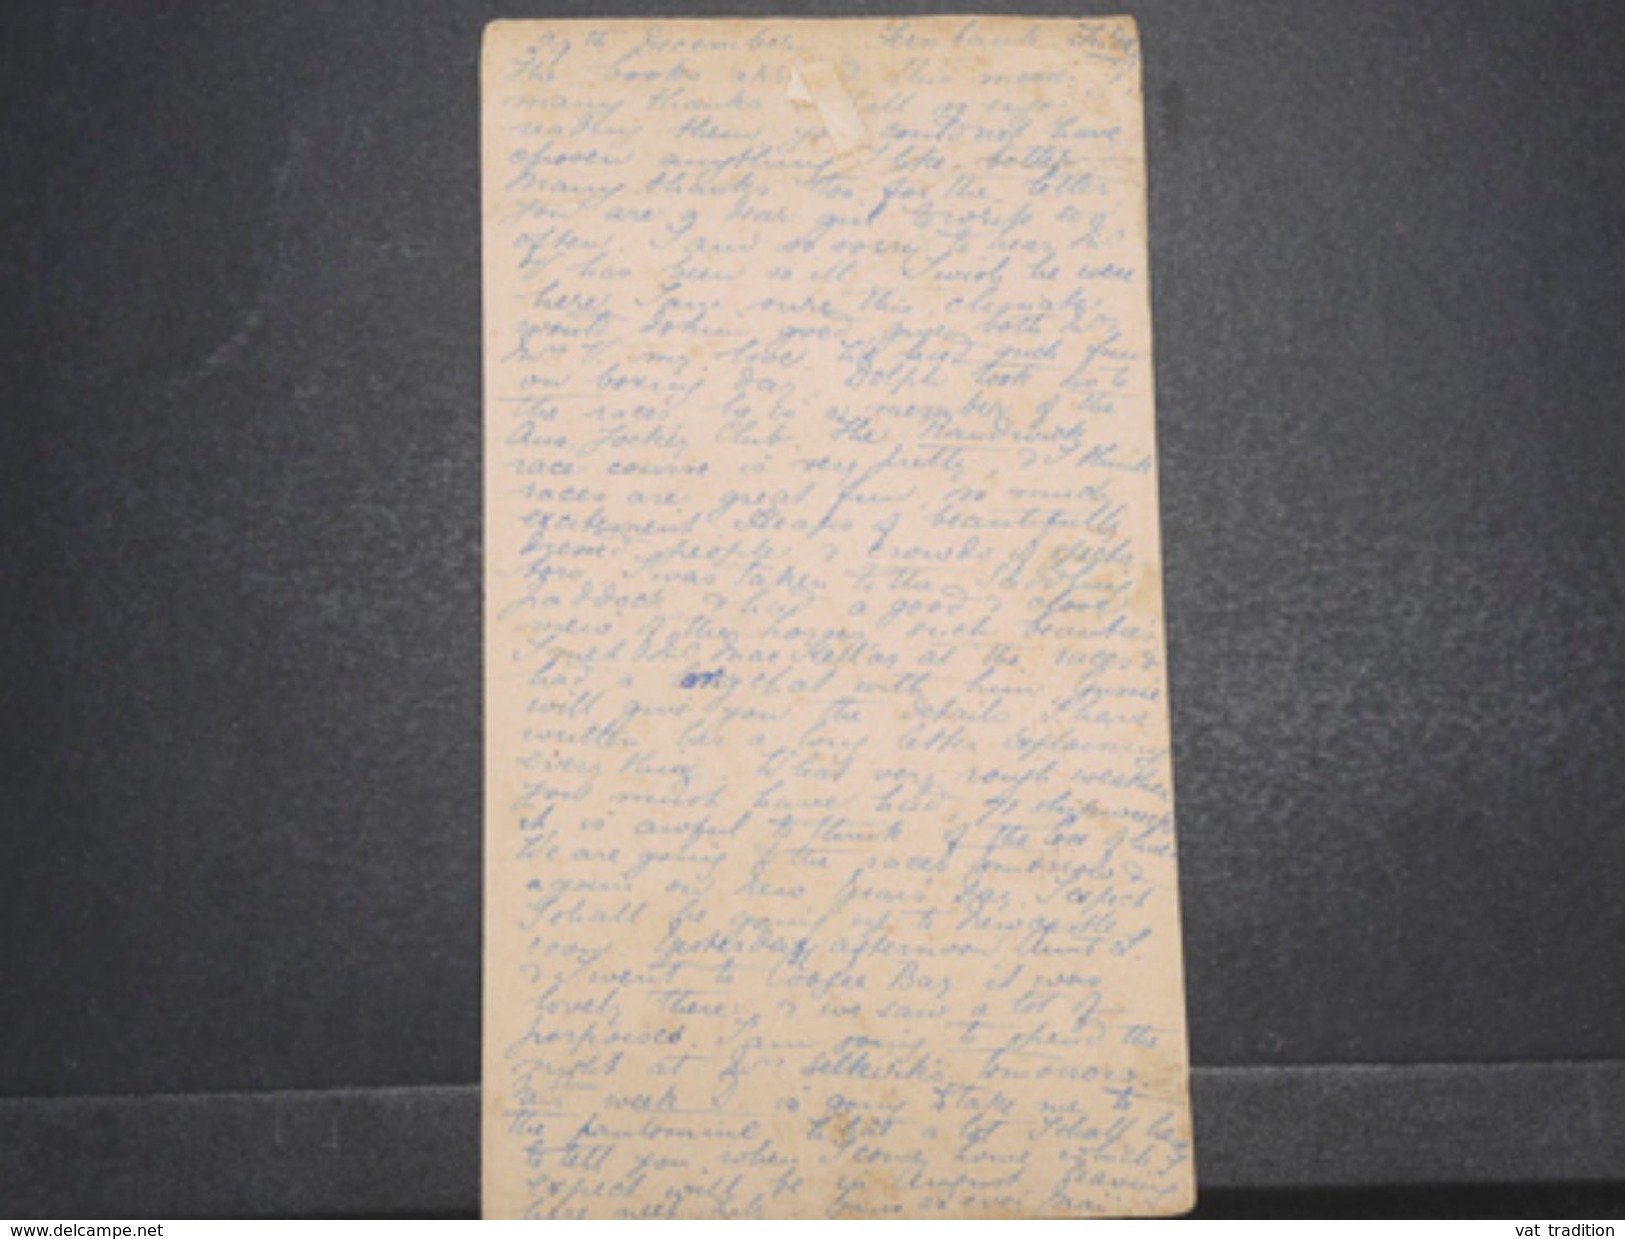 29th December Fernbank Friday
The books this
many thanks shall so enjoy
reading them you could not have
chosen anything I like better
Many thanks too for the letter
you are a dear girl to write so
often. I am so sorry to hear Mr
V has been so ill I wish he were
here I am sure this climate
would do him good give both Mr
Mrs V. my love. We had such fun
on boxing day Dolph took us to
the races he is a member of the
Aus. Jockey Club. The Randwick
race course is very pretty, & I think
races are great fun, so much
excitement Heaps of beautifully
dressed people & crowds of
I was taken to the
paddock & had a good & close
view of the horses such beauties
I met Mr MacKellar at the races &
had a long chat with him
will give you the details I have
written her a long letter explaining
everything. What very rough weather
you must have had,
it is awful to think of the loss of
We are going to the races tomorrow &
again on New Years Day I expect
I shall be going up to Newcastle
soon. Yesterday afternoon Aunt S.
& I went to Coogee Bay it was
lovely there & we saw a lot of
porpoises. I am going to spend the
night at Mrs tomorrow.
week is going to take me to
the pantomime What a lot I shall have
to tell you when I come home which I
expect will be in August leaving
here Yours as ever
www.delcampe.net
vat tradition